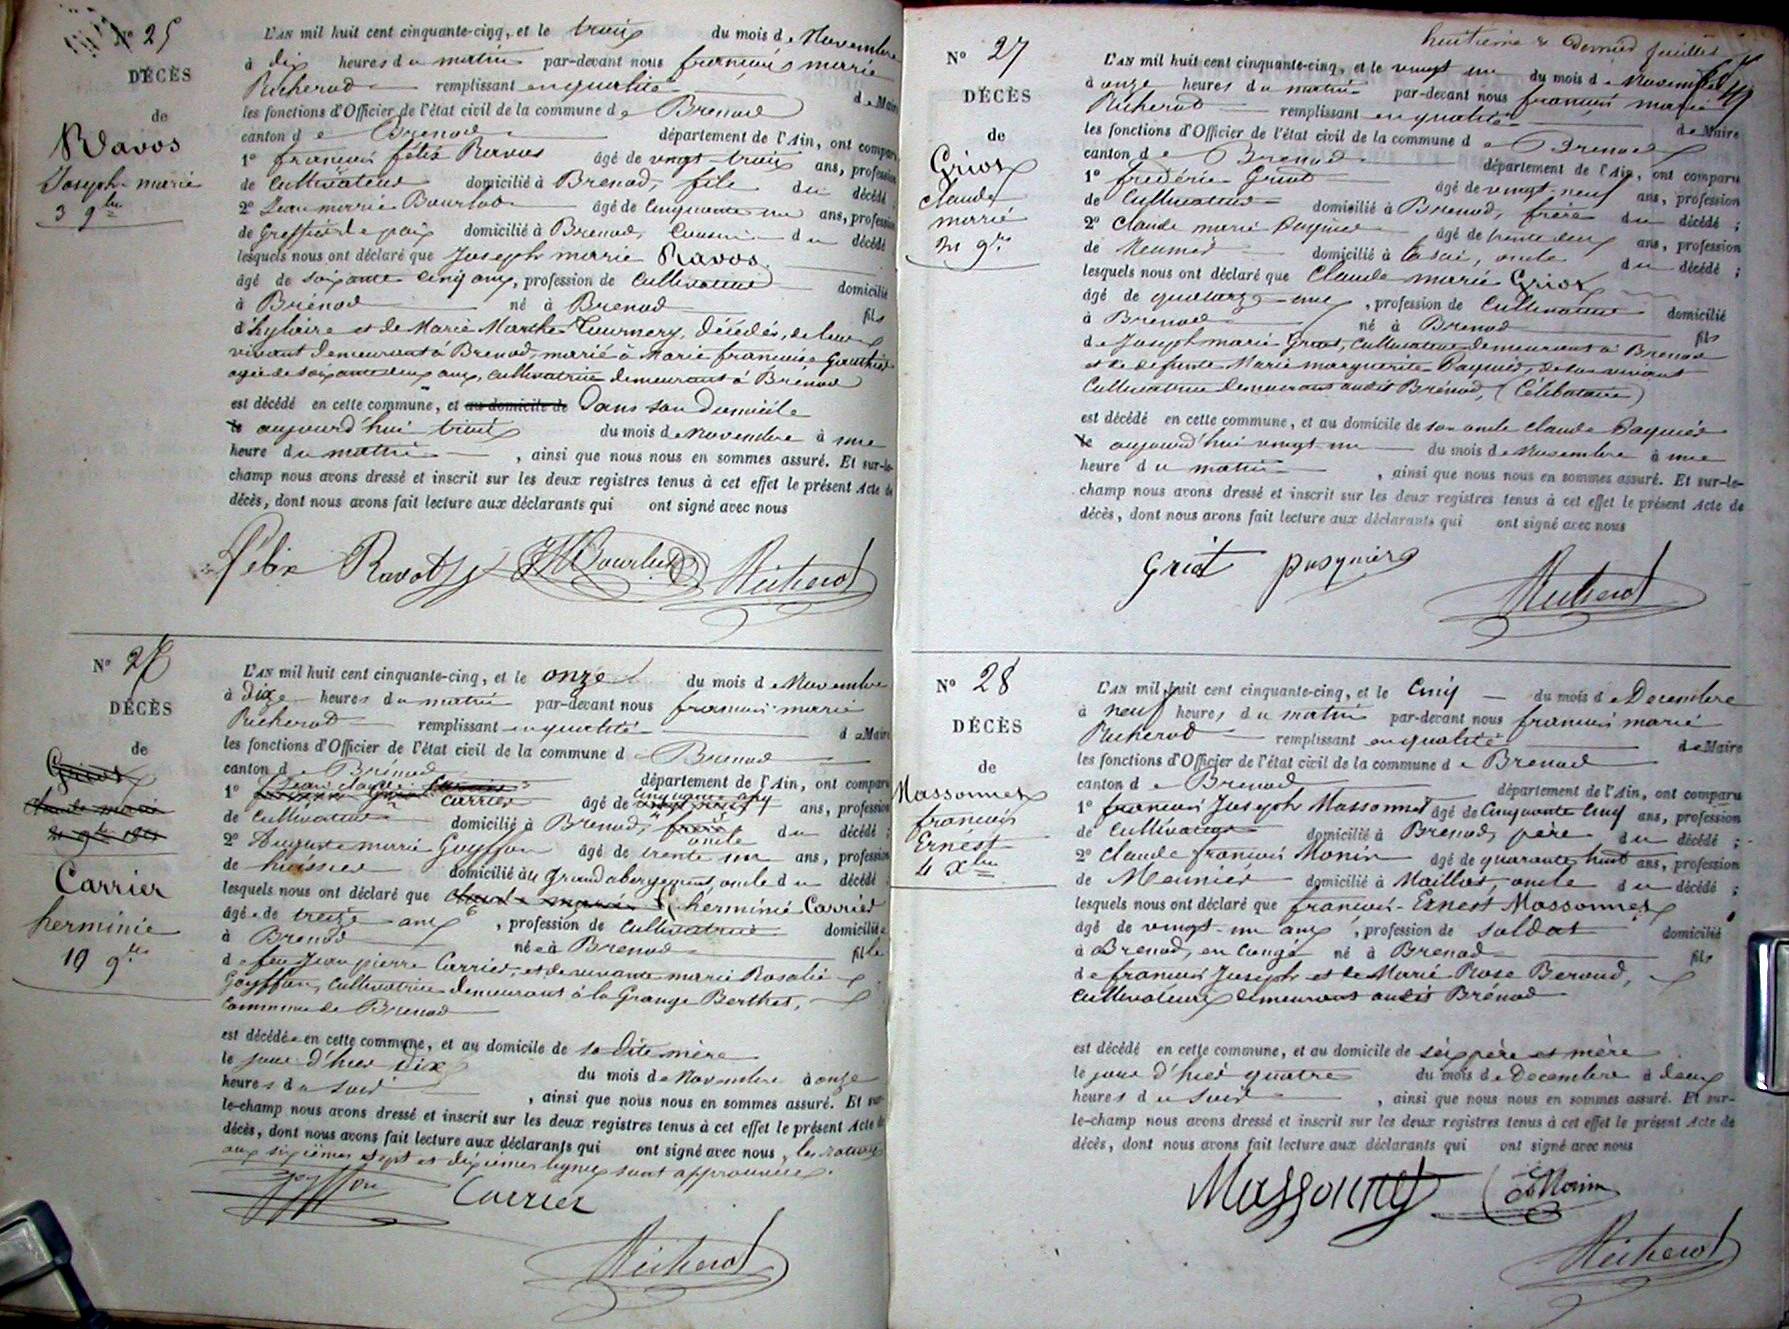 N° 25
DÉCÈS
de
Ravos
Joseph marie
3 9bre
L'AN mil huit cent cinquante-cinq, et le trois du mois de Novembre
à dix heures du matin par-devant nous françois marie
Richerod remplissant en qualité de Maire
les fonctions d'Officier de l'état civil de la commune de Brenod
canton de Brenod département de l'Ain, ont comparu
1° françois félix Ravos âgé de vingt trois ans, profession
de Cultivateur domicilié à Brenod, fils du décédé
2° Jean marie Bourlod âgé de Cinquante un ans, profession
de Greffier de paix domicilié à Brenod, Cousin du décédé
lesquels nous ont déclaré que Joseph marie Ravos
âgé de soixante Cinq ans, profession de Cultivateur domicilié
à Brénod né à Brenod fils
d'hylaire et de Marie Marthe Tournery, décédés, de leur
vivant demeurant à Brenod, marié à Marie françoise Gauthier
agée de soixante deux ans, cultivatrice demeurant à Brénod
est décédé en cette commune, et au domicile de Dans son Domicile
le aujourd'hui trois du mois de Novembre à une
heure du matin , ainsi que nous nous en sommes assuré. Et sur-le-
champ nous avons dressé et inscrit sur les deux registres tenus à cet effet le présent Acte de
décès, dont nous avons fait lecture aux déclarants qui ont signé avec nous
Félix Ravot JM Bourlod Richerod
N° 26
DÉCÈS
de
Griot
Claude marie
21 9bre 1855
Carrier
herminie
10 9bre
L'AN mil huit cent cinquante-cinq, et le onze du mois de Novembre
à dix heures du matin par-devant nous françois marie
Richerod remplissant en qualité de Maire
les fonctions d'Officier de l'état civil de la commune de Brenod
canton de Brénod département de l'Ain, ont comparu
1° Jean claude Carrier âgé de Cinquante cinq ans, profession
de Cultivateur domicilié à Brenod, oncle du décédé ;
2° Auguste marie Goyffon âgé de trente un ans, profession
de huissier domicilié au Grand abergement, oncle du décédé
lesquels nous ont déclaré que Claude marie herminie Carrier
âgée de treize ans , profession de Cultivatrice domiciliée
à Brenod née à Brenod fille
de feu Jean pierre Carrier et de vivante marie Rosalie
Goyffon, Cultivatrice demeurant à la Grange Berthet,
Commune de Brenod
est décédée en cette commune, et au domicile de sa dite mère
le jour d'hier Dix du mois de Novembre à onze
heures du soir , ainsi que nous nous en sommes assuré. Et sur-
le-champ nous avons dressé et inscrit sur les deux registres tenus à cet effet le présent Acte de
décès, dont nous avons fait lecture aux déclarants qui ont signé avec nous, les ratures
aux sixième sept et dixième lignes sont approuvées.
goyffon Carrier
Richerod
huitième & dernier feuillet
N° 27
DÉCÈS
de
Griot
Claude
marie
21 9bre
L'AN mil huit cent cinquante-cinq, et le vingt un du mois de Novembre
à onze heures du matin par-devant nous françois marie
Richerod remplissant en qualité de Maire
les fonctions d'Officier de l'état civil de la commune de Brenod
canton de Brenod département de l'Ain, ont comparu
1° frédéric Griot âgé de vingt neuf ans, profession
de Cultivateur domicilié à Brenod, frère du décédé ;
2° Claude marie Paquier âgé de trente deux ans, profession
de Meunier domicilié à , oncle du décédé ;
lesquels nous ont déclaré que Claude marie Griot
âgé de quatorze ans , profession de Cultivateur domicilié
à Brenod né à Brenod fils
de Joseph marie Griot, Cultivateur demeurant à Brenod
et de défunte Marie marguerite Paquier, de son vivant
Cultivatrice demeurant audit Brénod, (Célibataire)
est décédé en cette commune, et au domicile de son oncle Claude Paquier
le aujourd'hui vingt un du mois de Novembre à une
heure du matin , ainsi que nous nous en sommes assuré. Et sur-le-
champ nous avons dressé et inscrit sur les deux registres tenus à cet effet le présent Acte de
décès, dont nous avons fait lecture aux déclarants qui ont signé avec nous
Griot pasquier
Richerod
N° 28
DÉCÈS
de
Massonnet
françois
Ernest
4 Xbre
L'AN mil huit cent cinquante-cinq, et le Cinq du mois de Decembre
à neuf heures du matin par-devant nous françois marie
Richerod remplissant en qualité de Maire
les fonctions d'Officier de l'état civil de la commune de Brenod
canton de Brenod département de l'Ain, ont comparu
1° françois Joseph Massonnet âgé de Cinquante Cinq ans, profession
de Cultivateur domicilié à Brenod, père du décédé ;
2° Claude françois Monin âgé de quarante huit ans, profession
de Meunier domicilié à Maillat, oncle du décédé ;
lesquels nous ont déclaré que françois-Ernest Massonnet
âgé de vingt-un ans , profession de soldat domicilié
à Brenod, en Congé né à Brenod fils
de françois Joseph et de Marie Rose Beroud,
Cultivateurs demeurant audit Brénod
est décédé en cette commune, et au domicile de ses père et mère
le jour d'hier quatre du mois de Decembre à deux
heures du soir , ainsi que nous nous en sommes assuré. Et sur-
le-champ nous avons dressé et inscrit sur les deux registres tenus à cet effet le présent Acte de
décès, dont nous avons fait lecture aux déclarants qui ont signé avec nous
Massonnet Monin
Richerod